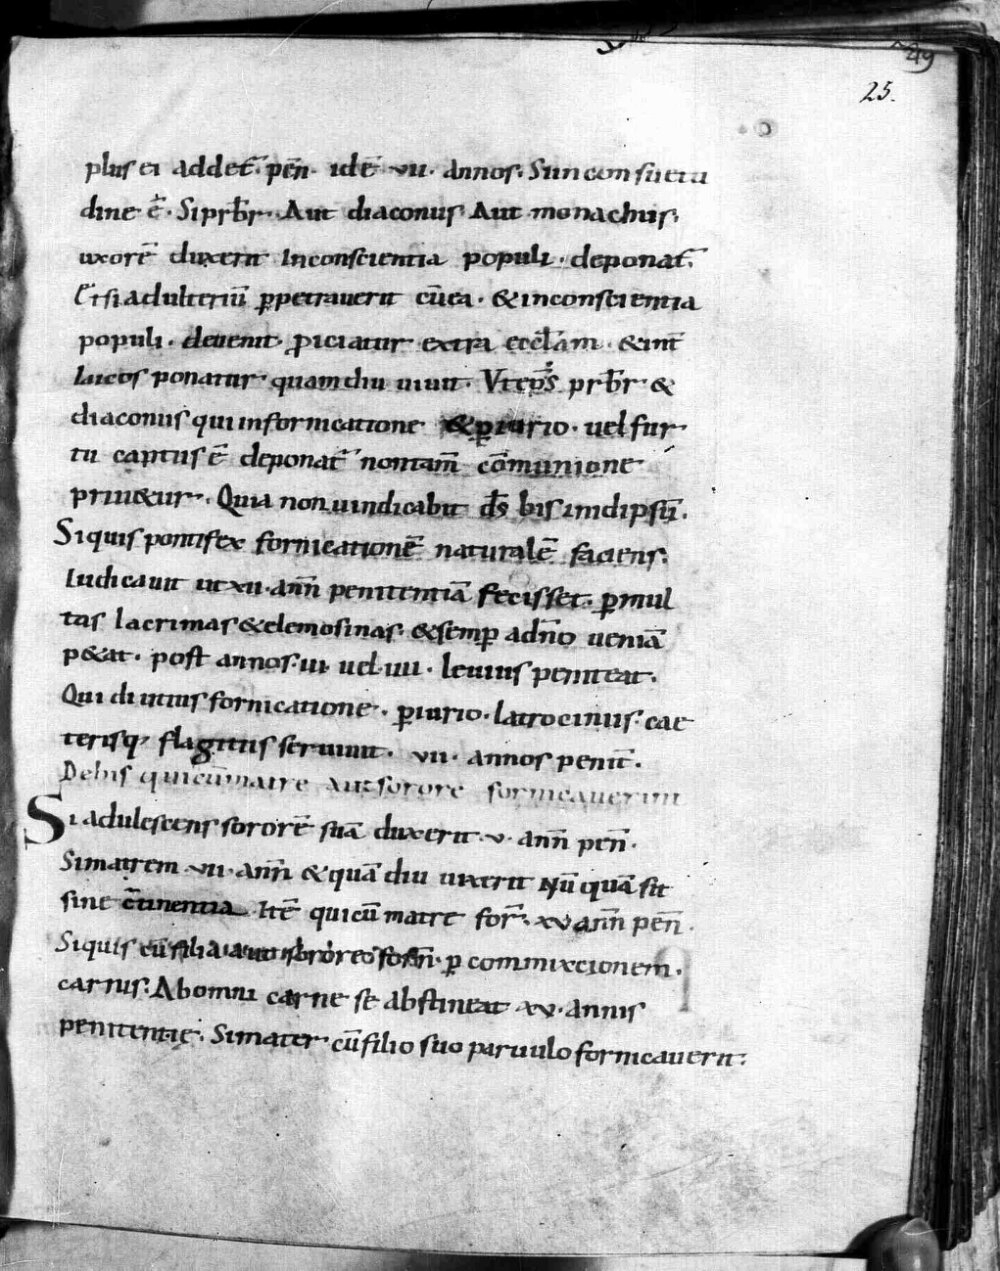 49
25.
plus ei addet̄. pēn. idē vii. annos. Sun con suetu
dine ē. Si prb̄r. Aut diaconus Aut monachus.
uxorē duxerit Inconscientia populi. deponat̄.
Et si adulteriū ꝑpetrauerit cū ea. & inconscientia
populi. deuenit. proiciatur extra eccl̄am. & int̄
Lucos ponatur. quam diu uiuit. Ut ep̄s prb̄r &
diaconus qui in fornicatione & ꝑiurio. uel fur
tu captus ē deponat̄ non tam̄ cōmunione
priu&ur. Quia non uindicabit ds̄ bis in idipsū.
Si quis pontifex fornicationē naturalē faciens.
Iudicauit ut xii. ann̄ penitentiā fecisset. ꝑ mul
tas lacrimas & elemosinas. & semꝑ ad dn̄o ueniā
p&at. post annos. iii. uel. iiii. leuius peniteat.
Qui diutius fornicatione. ꝑiurio. latrociniis. cae
terisq; flagitiis seruiunt. vii. annos penit̄.
De his qui cū matre aut sorore fornicauerint
Si adulescens sororē suā duxerit. v. ann̄ pen̄.
Si matrem. vii. ann̄ & quā diu uixerit nū quā sit
sine c̄tinentia. Itē qui cū matre for̄. xv ann̄ pen̄.
Si quis cū filia. aut sorore forn̄. ꝑ commixcionem.
carnis. Ab omni carne se abstineat xv. annis
penitentię. Si mater cū filio suo paruulo fornicauerit.